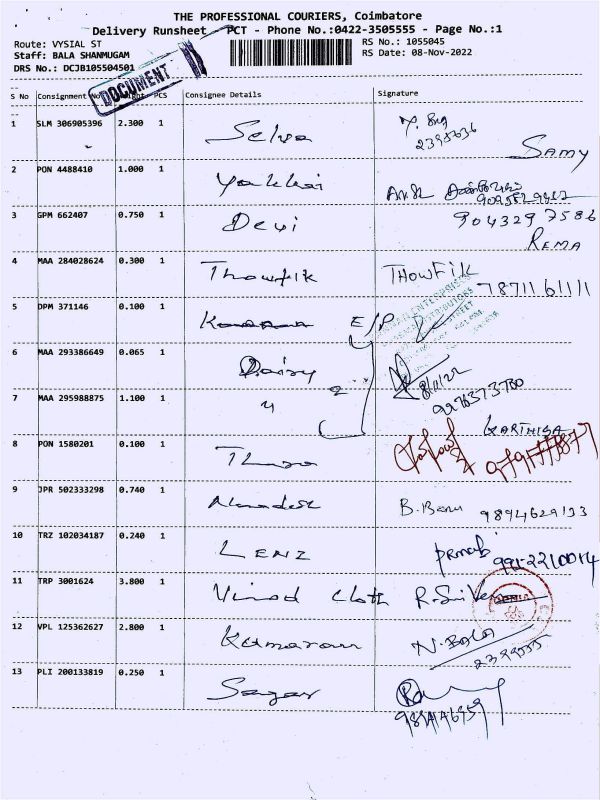 THE PROFESSIONAL COURIERS, Coimbatore
Delivery Runsheet PCT - Phone No.:0422-3505555 - Page No.:1
Route: VYSIAL ST
RS No.: 1055045
Staff: BALA SHANMUGAM
RS Date: 08-Nov-2022
DRS No.: DCJB105504501
DOCUMENT
S No Consignment No PCS Consignee Details Signature
1 SLM 306905396 2.300 1 Selva
2395636
SAMY
2 PON 4488410 1.000 1
3 GPM 662407 0.750 1 Devi 904329 7586
REMA
4 MAA 284028624 0.300 1 Thowfik THOWFIK
7871161111
5 DPM 371146 0.100 1
6 MAA 293386649 0.065 1 Dairy 2
8/11/22
7 MAA 295988875 1.100 1 9276373780
KARTHIGA
8 PON 1580201 0.100 1
9 JPR 502333298 0.740 1 B. Banu 9894629133
10 TRZ 102034187 0.240 1 LENZ
11 TRP 3001624 3.800 1 Vinod Cloth
12 VPL 125362627 2.800 1 Kumaran N. BALA
2399555
13 PLI 200133819 0.250 1 Sagar